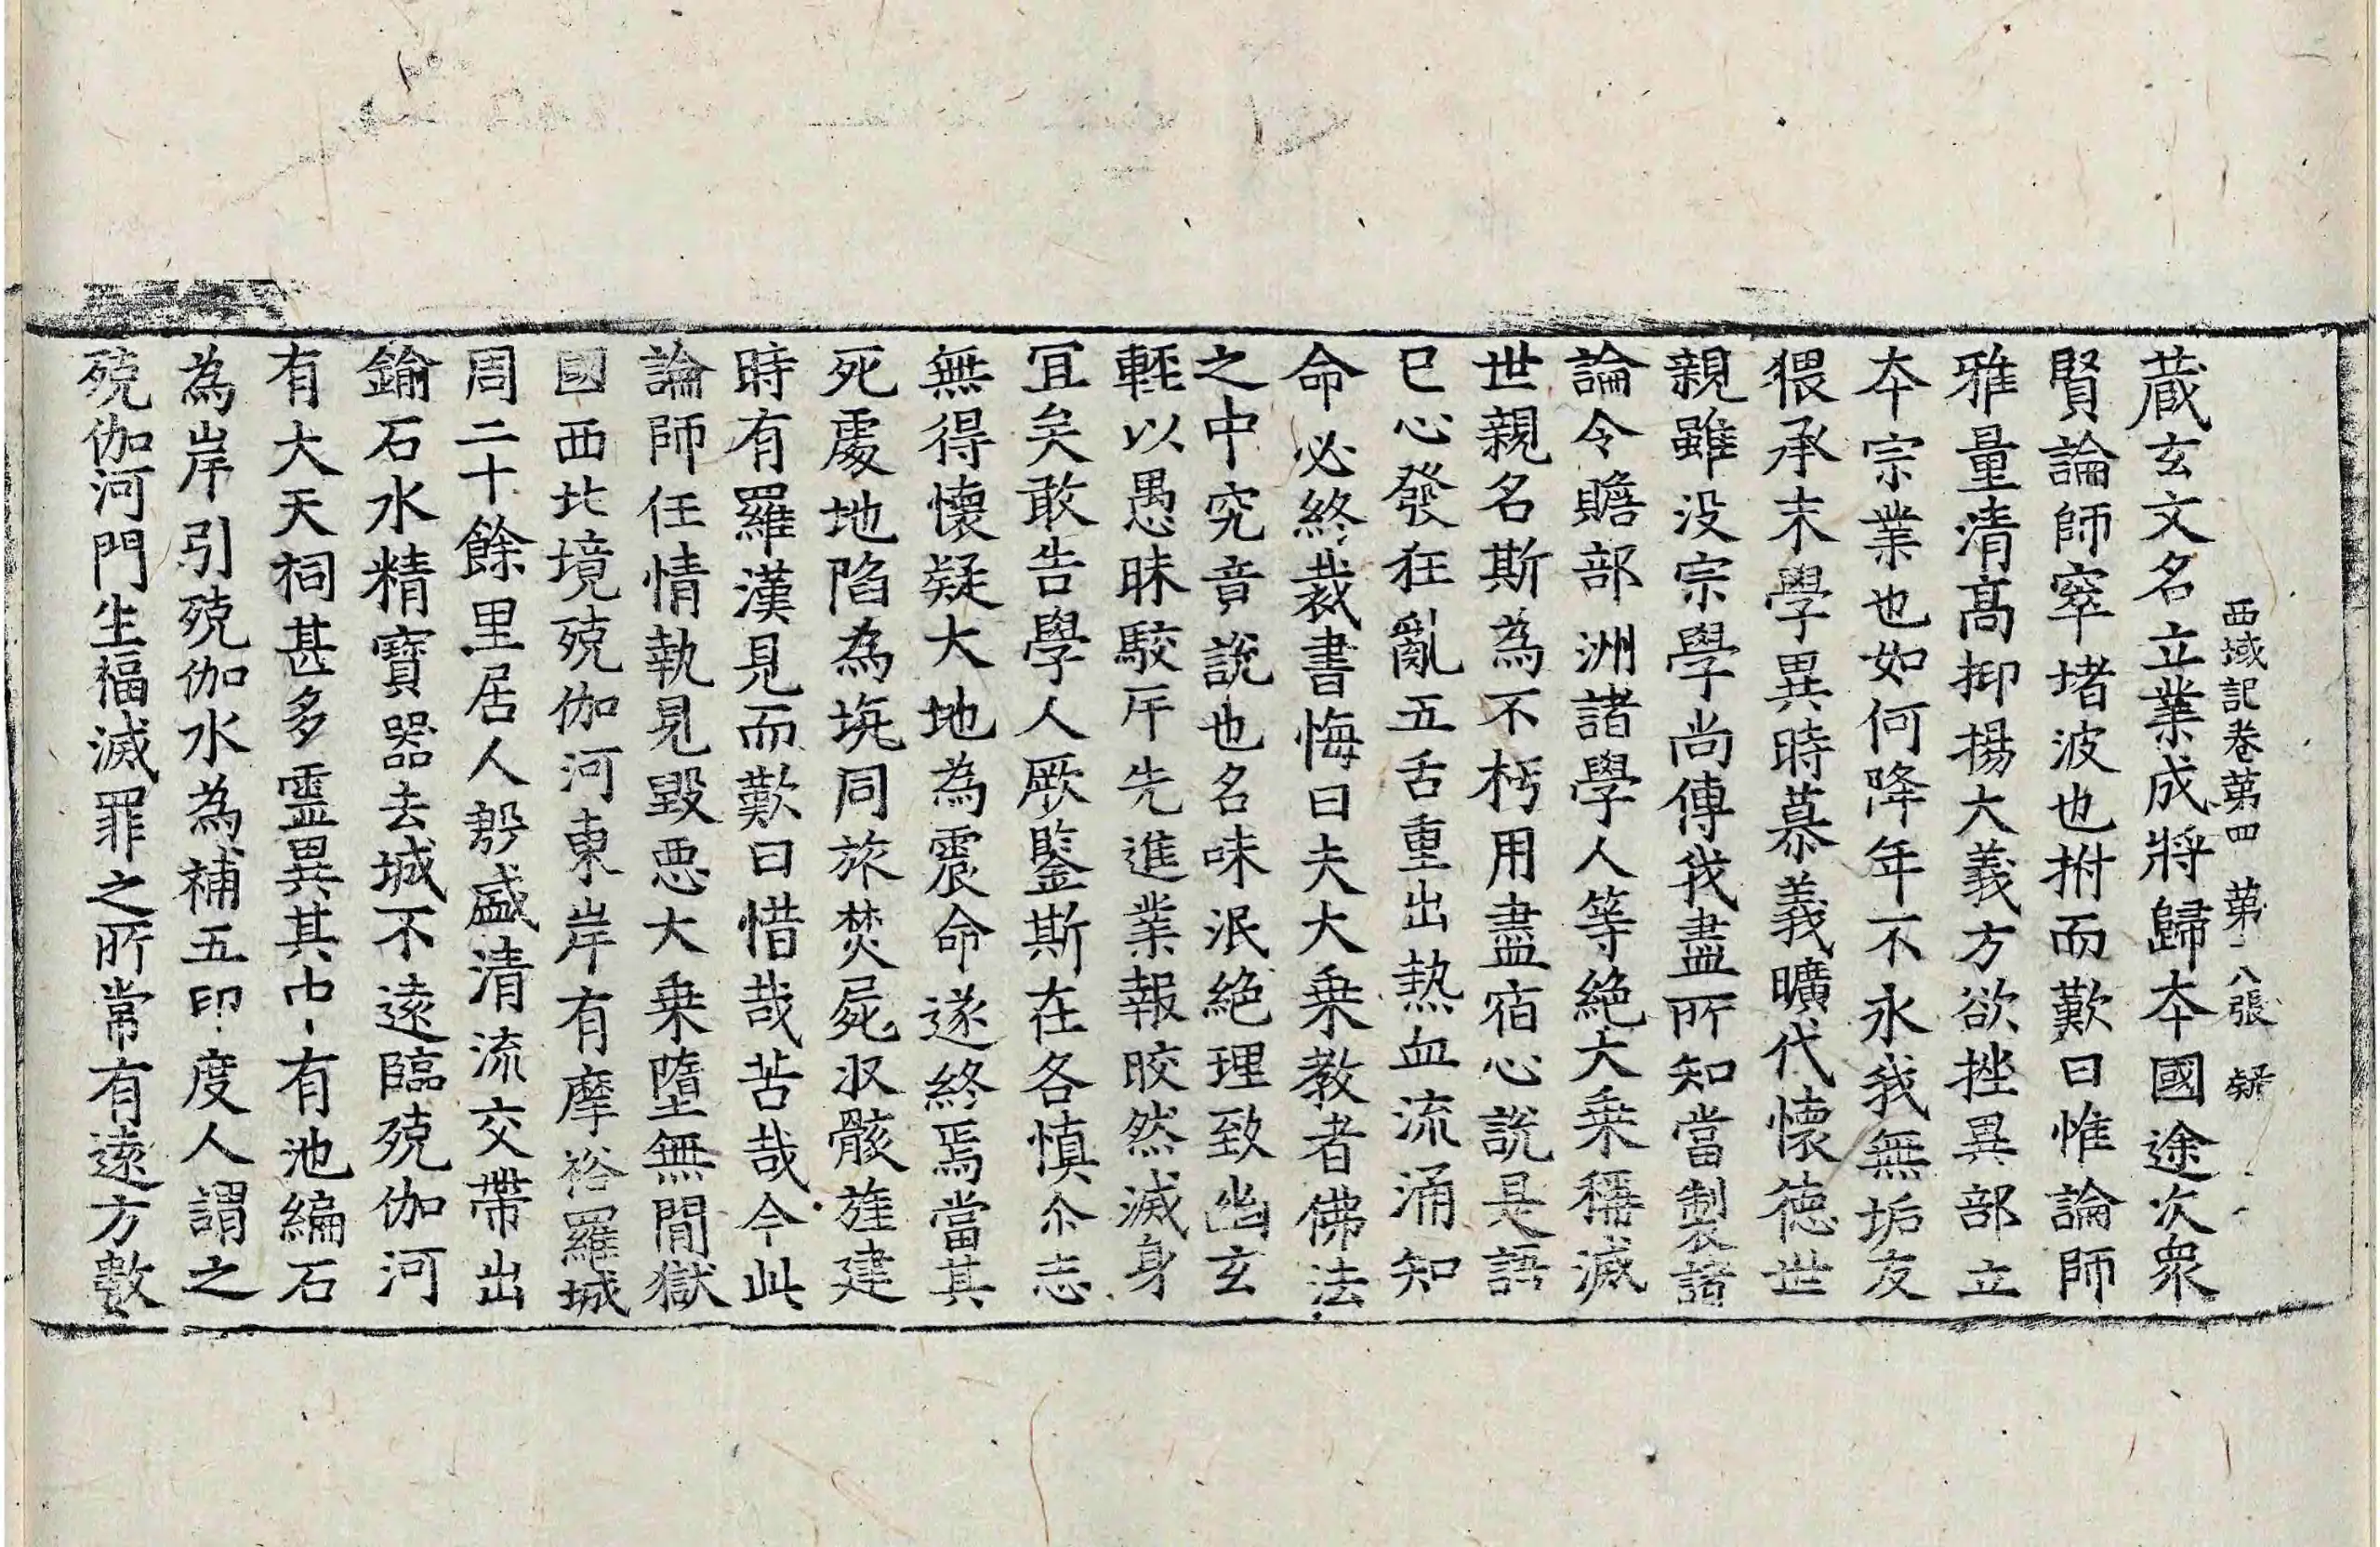 西域記卷第四 第十八張 疑
藏玄文名立業成將歸本國途次衆
賢論師窣堵波也拊而歎曰惟論師
雅量清高抑揚大義方欲挫異部立
本宗業也如何降年不永我無垢友
猥承末學異時慕義曠代懷德世
親雖没宗學尚傳我盡所知當製諸
論令贍部洲諸學人等絶大乗稱滅
世親名斯為不朽用盡宿心說是語
已心發狂亂五舌重出熱血流涌知
命必終裁書悔曰夫大乗教者佛法
之中究竟說也名味泯絶理致幽玄
輕以愚昧駮斥先進業報皎然滅身
宜矣敢告學人厥鑒斯在各慎尒志
無得懷疑大地為震命遂終焉當其
死處地陷為坑同旅焚屍收骸旌建
時有羅漢見而歎曰惜哉苦哉今此
論師任情執見毀惡大乗墮無間獄
國西北境殑伽河東岸有摩裕羅城
周二十餘里居人殷盛清流交帶出
鍮石水精寶器去城不遠臨殑伽河
有大天祠甚多靈異其中有池編石
為岸引殑伽水為補五印度人謂之
殑伽河門生福滅罪之所常有遠方數